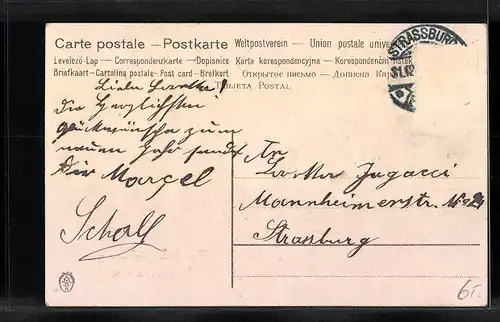 Carte postale — Postkarte Weltpostverein — Union postale univer
Levelező-Lap — Correspondenzkarte — Dopisnice Karta korespondencyjna — Korespondenčni listek
Briefkaart — Cartolina postale — Post card — Brefkort Открытое письмо — Дописна Кар
Tarjeta Postal
STRASSBURG
31.12
Liebe Lorotha!
Die Herzlichsten
glückwünsche zum
neuen Jahr sendet
dir Marçel
Schall
An
Lorotha Jugacci
Mannheimerstr. No 24
Strassburg
6T.